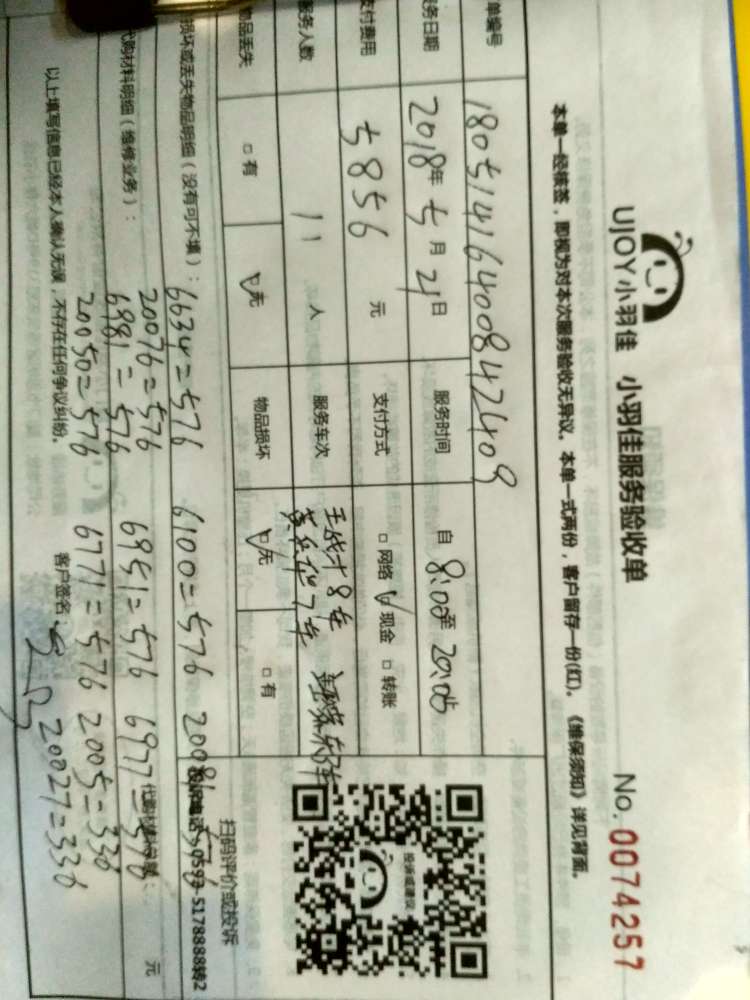 UJOY小羽佳 小羽佳服务验收单 No. 0074257
本单一经核签，即视为对本次服务验收无异议。本单一式两份，客户留存一份(红)。《维保须知》详见背面。
单编号 18051416400842409
务日期 2018年 5月 21日 服务时间 自 8:00至 20:05
支付费用 5856 元 支付方式 □网络 ☑现金 □转账
服务人数 11 人 服务车次 8车 7车
物品丢失 □有 ☑无 物品损坏 ☑无 □有
损坏或丢失物品明细（没有可不填）： 6634=576 6100=576 20081
代购材料明细（维修业务）： 20076=576 6951=576 6977=576
6981=576 元
20050=576 6771=576 2005=336
20027=336
以上填写信息已经本人确认无误，不存在任何争议纠纷。 客户签名：
投诉或建议
扫码评价或投诉
投诉电话：0593-5178888转2